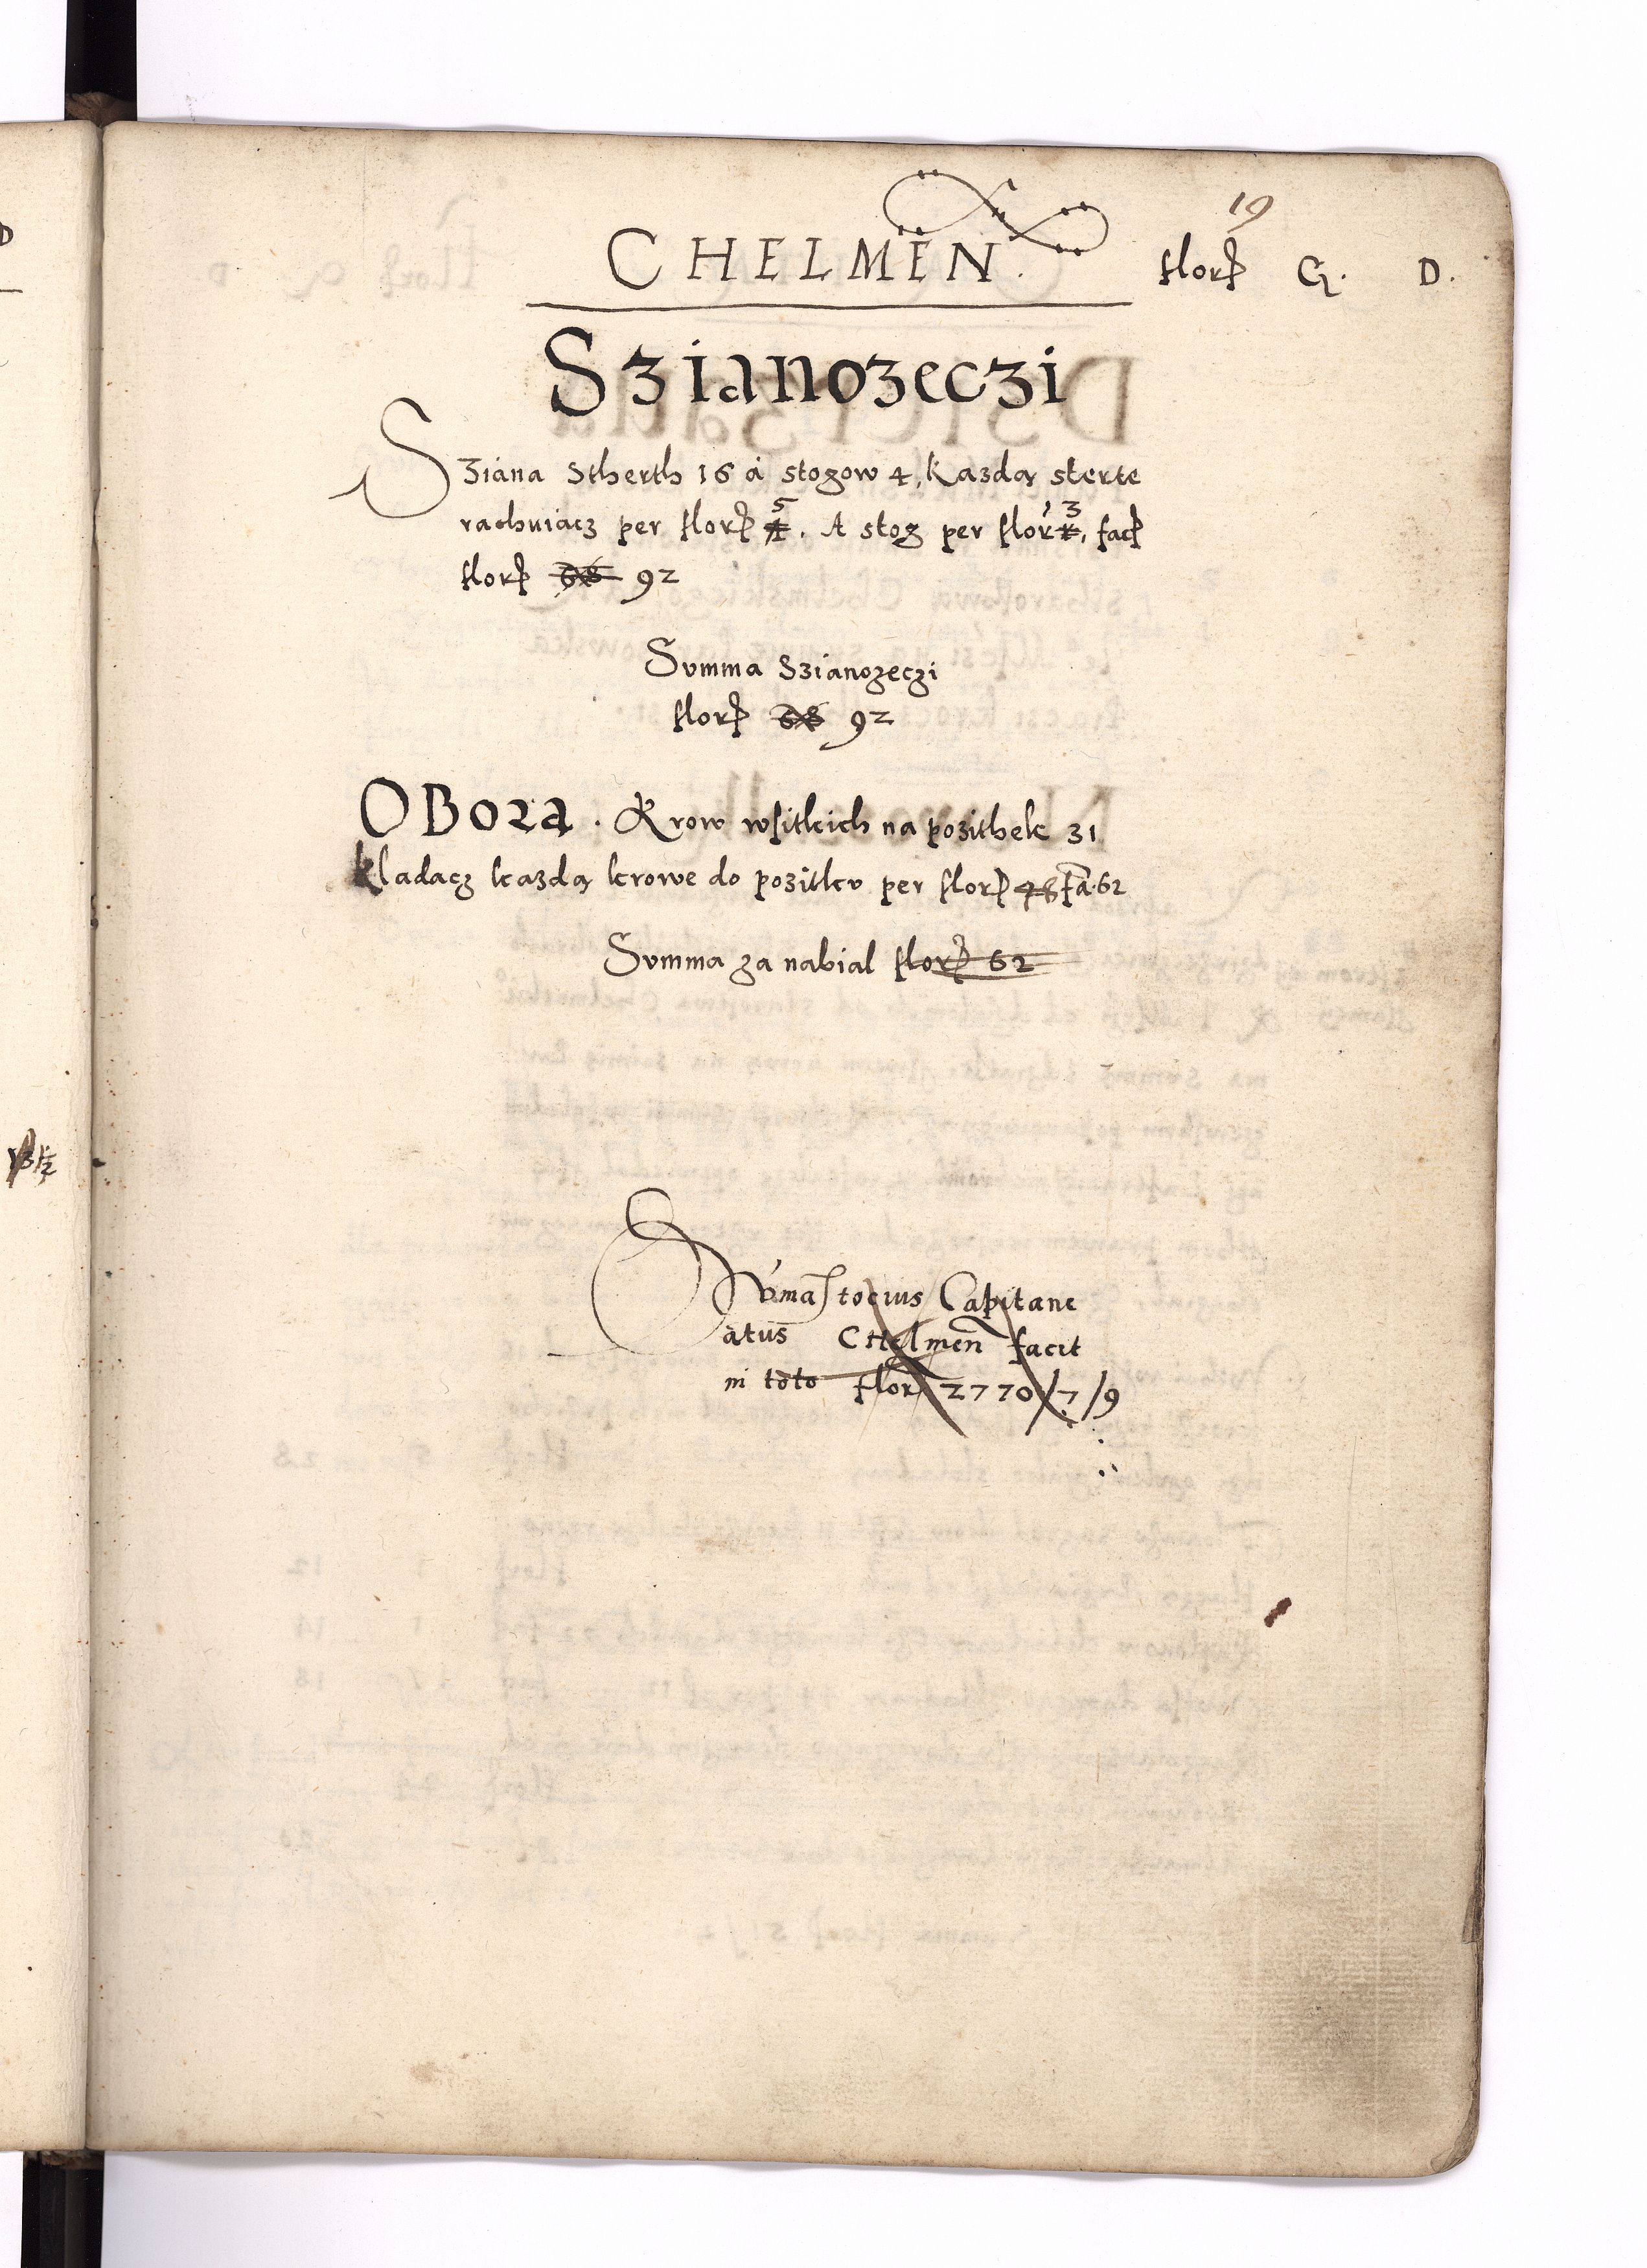 19
CHELMEN. florp Gr. D.
Szianozeczi
Sziana Stherth 16 à stogow 4, Kazdą sterte
rachuiącz per florp 4 5. A stog per flor 1 3, facp
florp 68 92
Summa Szianozeczi
florp 68 92
OBORA. Krow wsitkich na pozithek 31
kładacz kazdą krowe do pozitku per florp 48 fa. 62
Summa za nabial florp 62
Suma tocius Capitane
atus CHelmen facit
in toto flor 2770/7/9